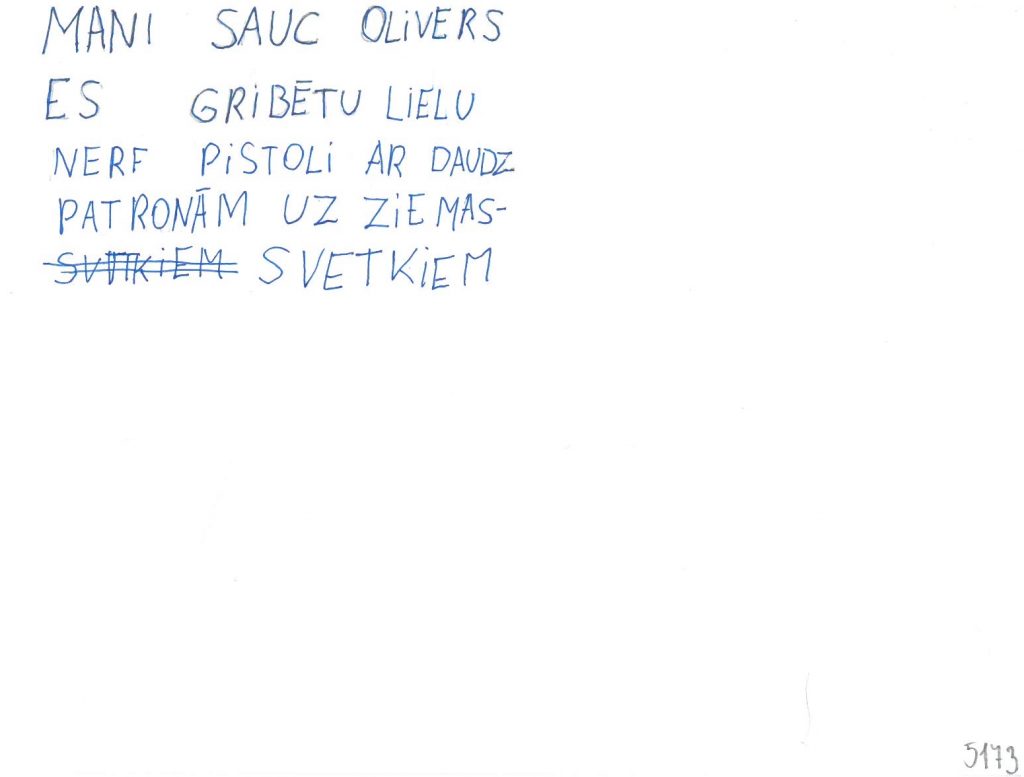 MANI SAUC OLIVERS
ES GRIBĒTU LIELU
NERF PISTOLI AR DAUDZ
PATRONĀM UZ ZIEMAS-
SVETKIEM
5173